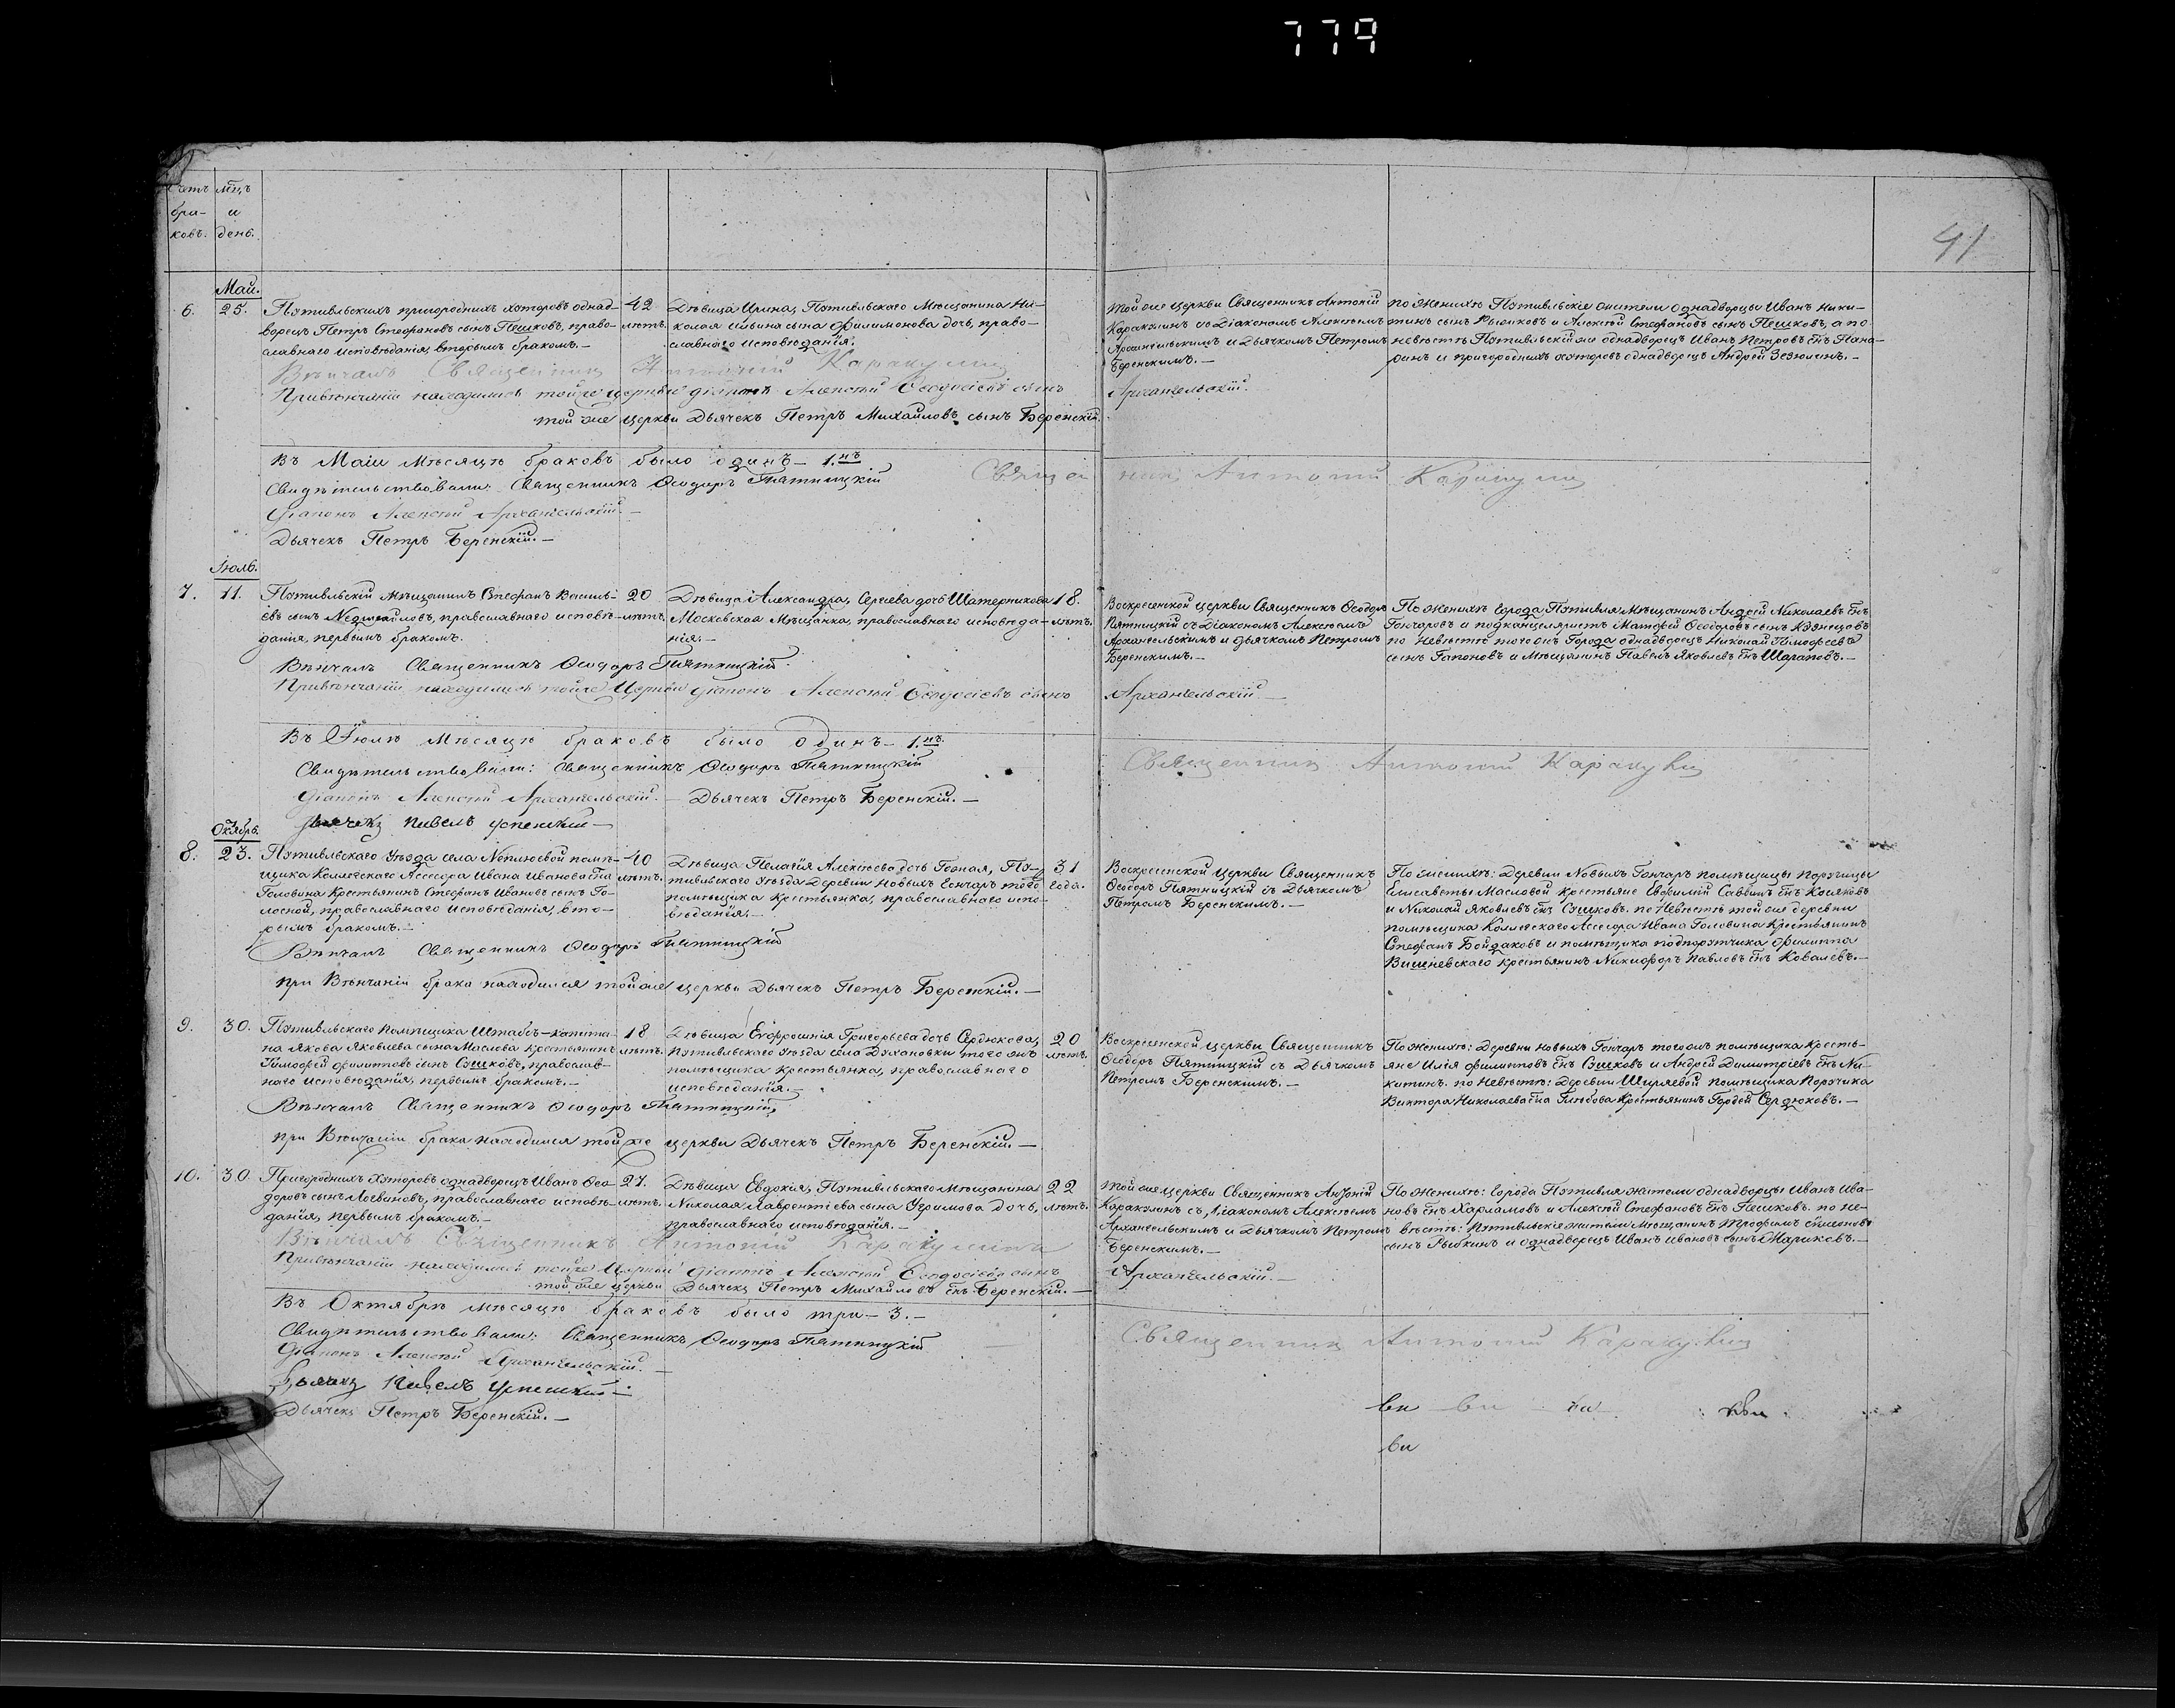 779
41
Счетъ
бра-
ковъ.
мѣц.
и
день.
Маи.
6.
25.
Путивльскихъ пригородныхъ хуторовъ однад-
ворецъ Петръ Стефановъ сынъ Пешковъ, право-
славнаго исповѣданія, вторымъ бракомъ.—
42
лѣтъ.
Дѣвица Ирина, Путивльскаго Мѣщанина Ни-
колая Ильина сына Филимонова дочь, право-
славнаго исповѣданія.
Той же церкви Священникъ Антоній
Каракулинъ со Діакономъ Алексѣемъ
Архангельскимъ и Дьячкомъ Петромъ
Беренскимъ.—
По Женихѣ Путивльскіе жители Однадворцы Иванъ Ники-
тинъ сынъ Рыжковъ и Алексѣй Стефановъ сынъ Пешковъ, а по
невѣстѣ Путивльскій же однадворецъ Иванъ Петровъ снъ Пана-
ринъ и пригородныхъ хуторовъ однадворецъ Андрей Зевюлинъ.—
Вѣнчалъ Священникъ Антоній Каракулин
При вѣнчаніи находились тойже церкви діаконъ Алексѣй Ѳеодосіевъ сынъ Архангельскій.
той же церкви Дьячекъ Петръ Михайловъ сынъ Беренскій.
Въ Маіи мѣсяцѣ браковъ было одинъ— 1.нъ
Свидѣтельствовали: Священникъ Ѳеодоръ Пятницкій
Священник Антоній Каракулин
Діаконъ Алексѣй Архангельскій.—
Дьячекъ Петръ Беренскій.—
Іюль.
7.
11.
Путивльскій мѣщанинъ Стефанъ Василь-
евъ сынъ Недригайловъ, православнаго исповѣ-
данія, первымъ бракомъ.
20
лѣтъ.
Дѣвица Александра, Сергеева дочь Шатерникова
Московская Мѣщанка, православнаго исповѣда-
нія.—
18.
лѣтъ.
Воскресенской церкви Священникъ Ѳеодоръ
Пятницкій съ Діакономъ Алексѣемъ
Архангельскимъ и Дьячкомъ Петромъ
Беренскимъ.—
По Женихѣ города Путивля Мѣщанинъ Андрей Николаевъ снъ
Гончаровъ и подканцеляристъ Матфей Ѳеодоровъ сынъ Кузнецовъ
по Невѣстѣ того жъ Города однадворецъ Николай Тимофеевъ
сынъ Гапоновъ и Мѣщанинъ Павелъ Яковлевъ снъ Шараповъ.—
Вѣнчалъ Священникъ Ѳеодоръ Пятницкій.
При вѣнчаніи находился тойже Церкви діаконъ Алексѣй Ѳеодосіевъ сынъ Архангельскій.—
Въ Іюлѣ мѣсяцѣ браковъ было одинъ— 1.нъ
Свидѣтельствовали: Священникъ Ѳеодоръ Пятницкій
Священник Антоній Каракулин
Діаконъ Алексѣй Архангельскій.— Дьячекъ Петръ Беренскій.—
Дьячекъ Павелъ Успенскій—
Октябрь.
8.
23.
Путивльскаго Уѣзда села Неплюевой помѣ-
щика Коллежскаго Ассесора Ивана Иванова сна
Головина Крестьянинъ Стефанъ Ивановъ сынъ Го-
лосной, православнаго исповѣданія, вто-
рымъ бракомъ.—
40
лѣтъ.
Дѣвица Пелагія Алексѣева дочь Гоэная, Пу-
тивльскаго Уѣзда Деревни Новыхъ Гончаръ того
помѣщика крестьянка, православнаго испо-
вѣданія.—
31
года.
Воскресенской церкви Священникъ
Ѳеодоръ Пятницкій съ Дьячкомъ
Петромъ Беренскимъ.—
По женихѣ: Деревни Новыхъ Гончаръ помѣщицы Поручицы
Елисаветы Масловой Крестьяне Евфимій Саввинъ снъ Козаковъ
и Николай Яковлевъ снъ Сушковъ. по Невѣстѣ той же деревни
помѣщика Коллежскаго Ассесора Ивана Головина Крестьянинъ
Стефанъ Бойдаковъ и помѣщика подпоручика Филиппа
Вишневскаго крестьянинъ Никифоръ Павловъ снъ Ковалевъ.—
Вѣнчалъ Священникъ Ѳеодоръ Пятницкій
при Вѣнчаніи брака находился той же церкви Дьячекъ Петръ Беренскій.—
9.
30.
Путивльскаго Помѣщика Штабсъ-капита-
на Якова Яковлева сына Маслова крестьянинъ
Тимофей Филиповъ сынъ Сушковъ, православ-
наго исповѣданія, первымъ бракомъ.—
18
лѣтъ.
Дѣвица Евфросинія Григорьева дочь Сердюкова,
Путивльскаго Уѣзда села Духановки того жъ
помѣщика крестьянка, православнаго
исповѣданія.—
20
лѣтъ.
Воскресенской церкви Священникъ
Ѳеодоръ Пятницкій съ Дьячкомъ
Петромъ Беренскимъ.—
По Женихѣ: Деревни Новыхъ Гончаръ того жъ помѣщика кресть-
яне Илія Филиповъ снъ Сушковъ и Андрей Димитріевъ снъ Ни-
китинъ. по Невѣстѣ: Деревни Ширяевой помѣщика Поручика
Виктора Николаева сна Глѣбова Крестьянинъ Гордей Сердюковъ.—
Вѣнчалъ Священникъ Ѳеодоръ Пятницкій
при Вѣнчаніи брака находился той же церкви Дьячекъ Петръ Беренскій.—
10.
30
Пригородныхъ Хуторовъ однадворецъ Иванъ Ѳео-
доровъ сынъ Логвиновъ, православнаго исповѣ-
данія, первымъ бракомъ.—
27.
лѣтъ.
Дѣвица Евдокія, Путивльскаго Мѣщанина
Николая Лаврентіева сына Угримова дочь,
православнаго исповѣданія.—
22
лѣтъ.
Той же церкви Священникъ Антоній
Каракулинъ съ Діакономъ Алексѣемъ
Архангельскимъ и Дьячкомъ Петромъ
Беренскимъ.—
По Женихѣ: города Путивля жители однадворцы Иванъ Ива-
новъ снъ Харламовъ и Алексѣй Стефановъ снъ Пешковъ. по не-
вѣстѣ: Путивльскіе жители Мѣщанинъ Трофимъ Симеоновъ
сынъ Рыбкинъ и однадворецъ Иванъ Ивановъ сынъ Мариковъ.—
Вѣнчалъ Священникъ Антоній Каракулинъ
При вѣнчаніи находился тойже Церкви діаконъ Алексѣй Ѳеодосіевъ сынъ Архангельскій.—
той же церкви Дьячекъ Петръ Михайловъ снъ Беренскій.—
Въ Октябрѣ мѣсяцѣ браковъ было три— 3.—
Свидѣтельствовали: Священникъ Ѳеодоръ Пятницкій
Священник Антоній Каракулин
Діаконъ Алексѣй Архангельскій.—
Дьячекъ Павелъ Успенскій—
Дьячекъ Петръ Беренскій.—
ви ви ви
ви